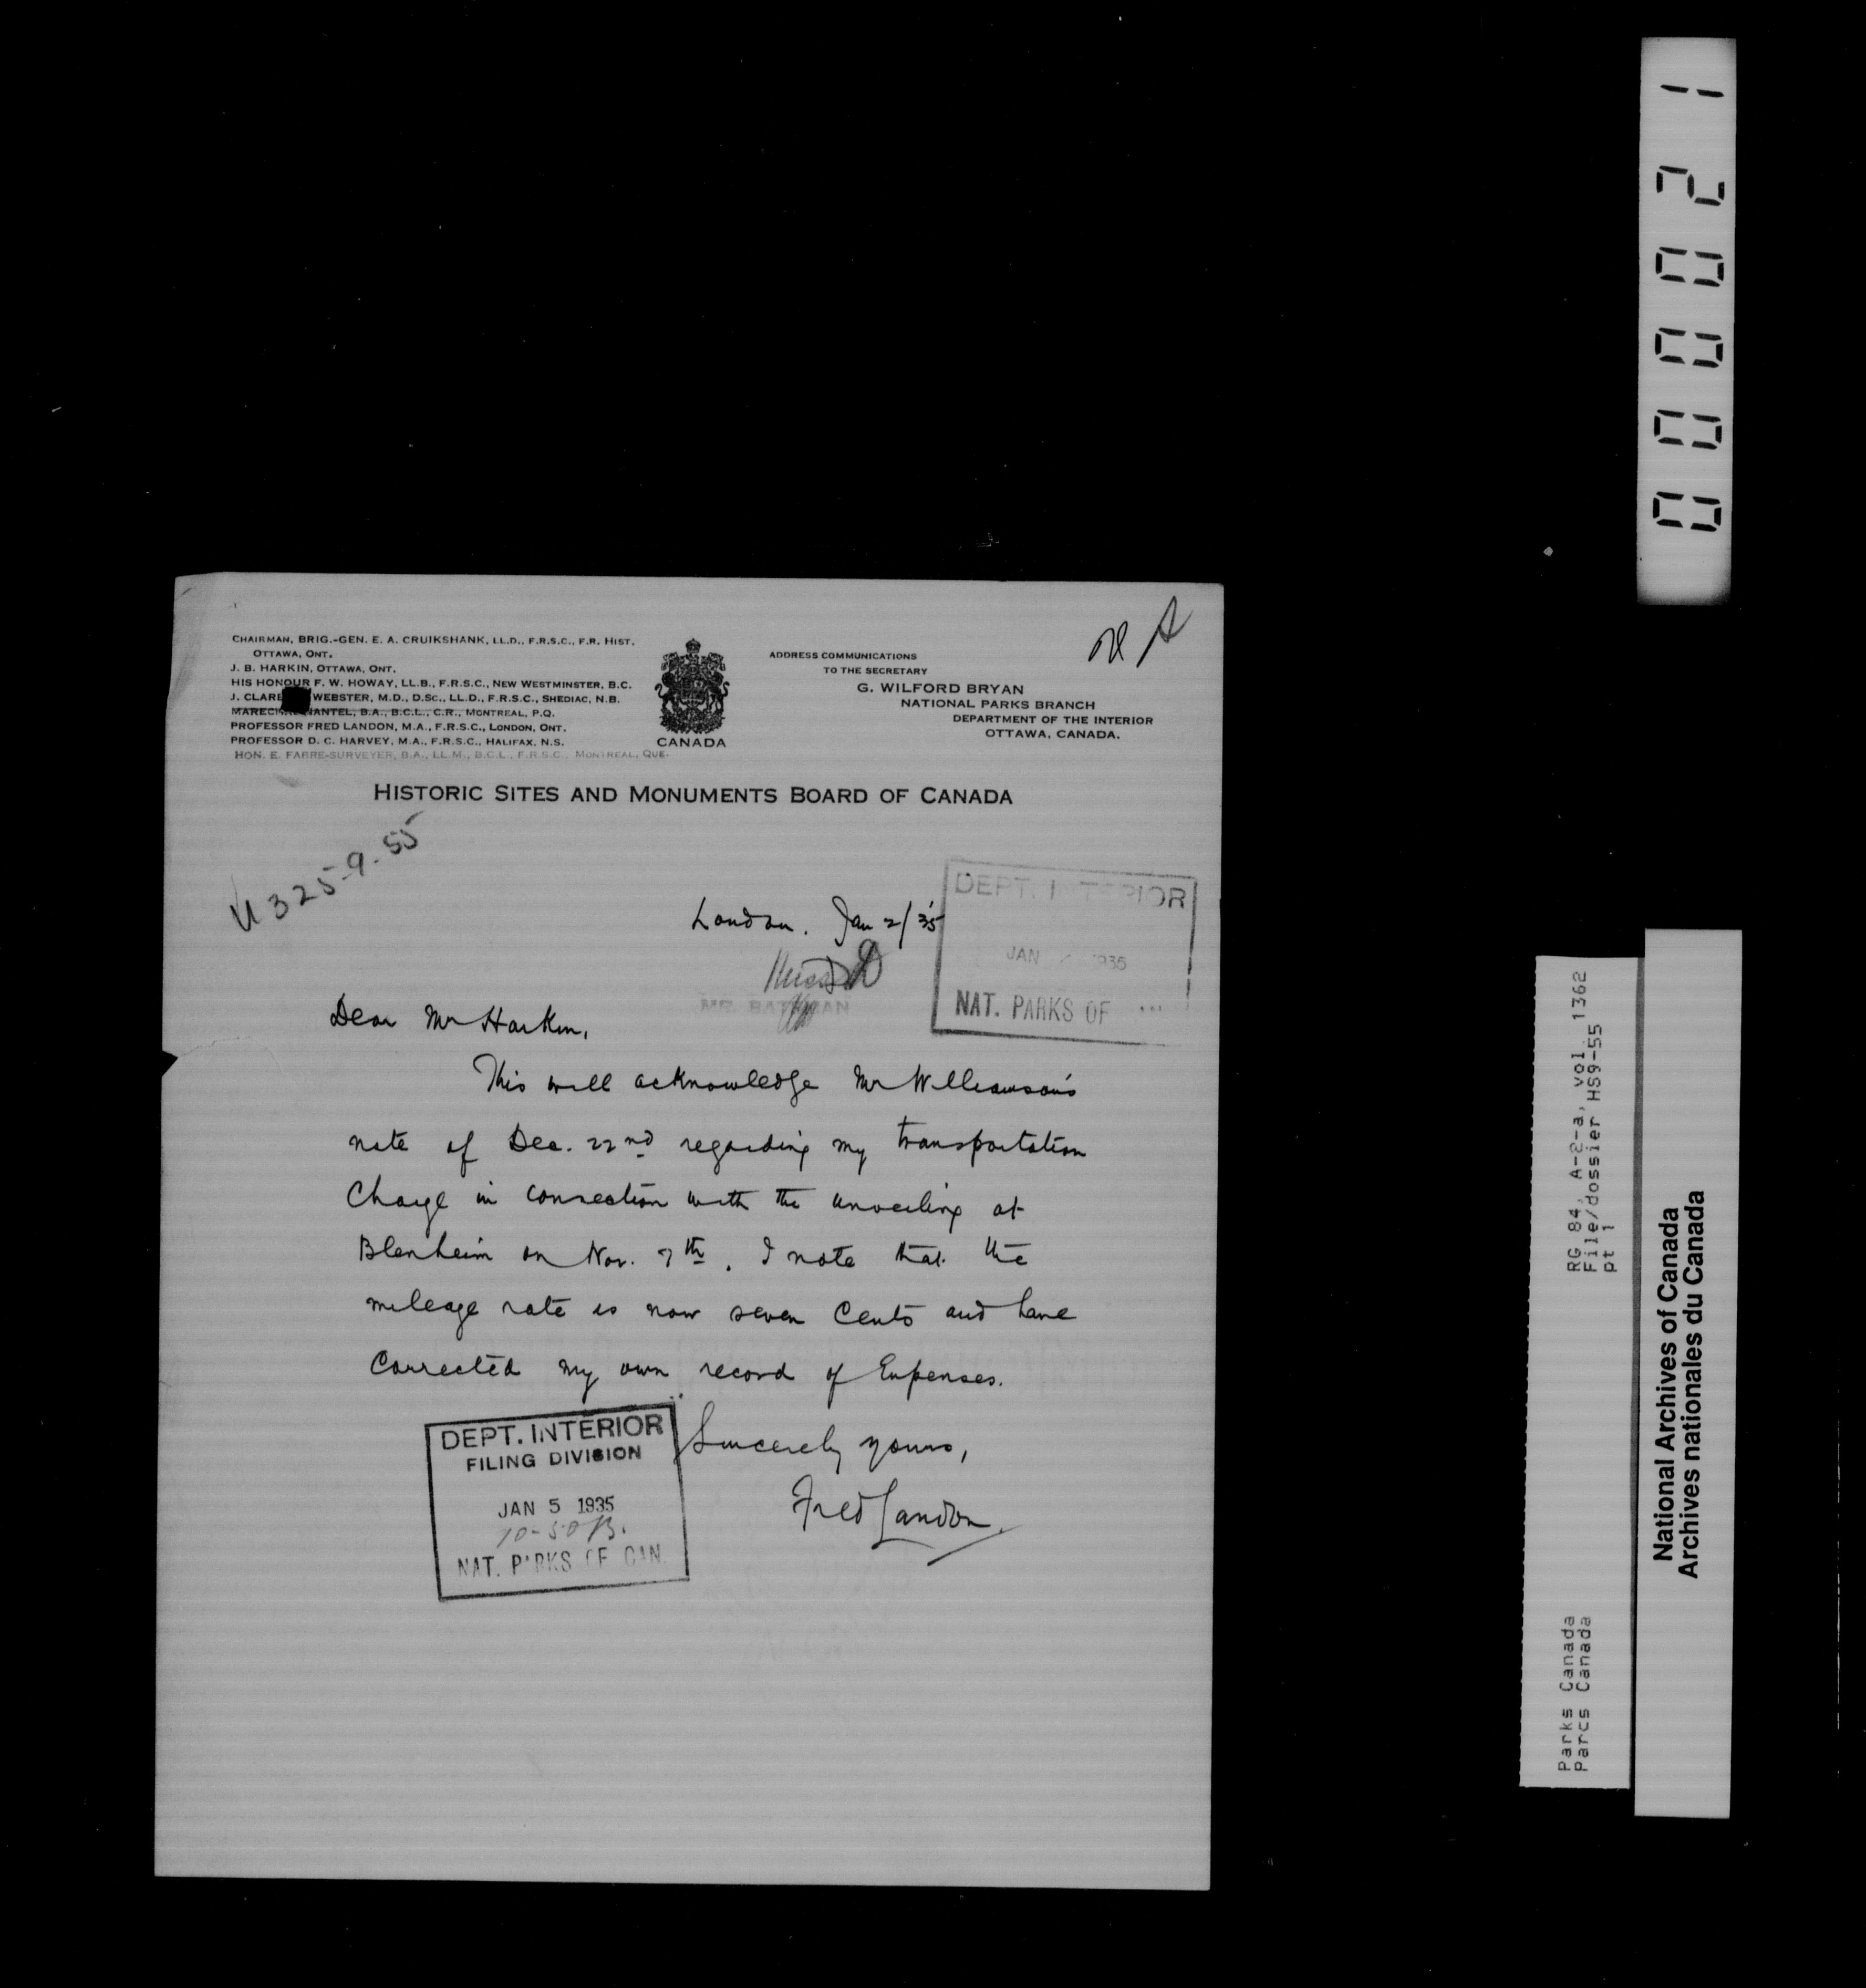 CHAIRMAN, BRIG.-GEN. E. A. CRUIKSHANK, LL.D., F.R.S.C., F.R. HIST.
OTTAWA, ONT.
J. B. HARKIN, OTTAWA, ONT.
HIS HONOUR F. W. HOWAY, LL.B., F.R.S.C., NEW WESTMINSTER, B.C.
J. CLARE WEBSTER, M.D., D.SC., LL.D., F.R.S.C., SHEDIAC, N.B.
NANTEL, B.A., B.C.L., C.R., MONTREAL, P.Q.
PROFESSOR FRED LANDON, M.A., F.R.S.C., LONDON, ONT.
PROFESSOR D. C. HARVEY, M.A., F.R.S.C., HALIFAX, N.S.
HON. E. FABRE-SURVEYER, B.A., LL.M., B.C.L., F.R.S.C., MONTREAL, QUE.
CANADA
ADDRESS COMMUNICATIONS
TO THE SECRETARY
G. WILFORD BRYAN
NATIONAL PARKS BRANCH
DEPARTMENT OF THE INTERIOR
OTTAWA, CANADA.
HISTORIC SITES AND MONUMENTS BOARD OF CANADA
U 325-9-55
London. Jan 2/35
DEPT. INTERIOR
JAN 1935
NAT. PARKS OF
MR. BATEMAN
Dear Mr Harkin,
This will acknowledge Mr Williamson's
note of Dec. 22nd regarding my transportation
charge in connection with the unveiling at
Blenheim on Nov. 7th. I note that the
mileage rate is now seven cents and have
corrected my own record of expenses.
Sincerely yours,
Fred Landon.
DEPT. INTERIOR
FILING DIVISION
JAN 5 1935
10-50 B.
NAT. PARKS OF CAN.
000021
RG 84, A-2-a, vol. 1362
File/dossier HS9-55
pt 1
Parks Canada
Parcs Canada
National Archives of Canada
Archives nationales du Canada